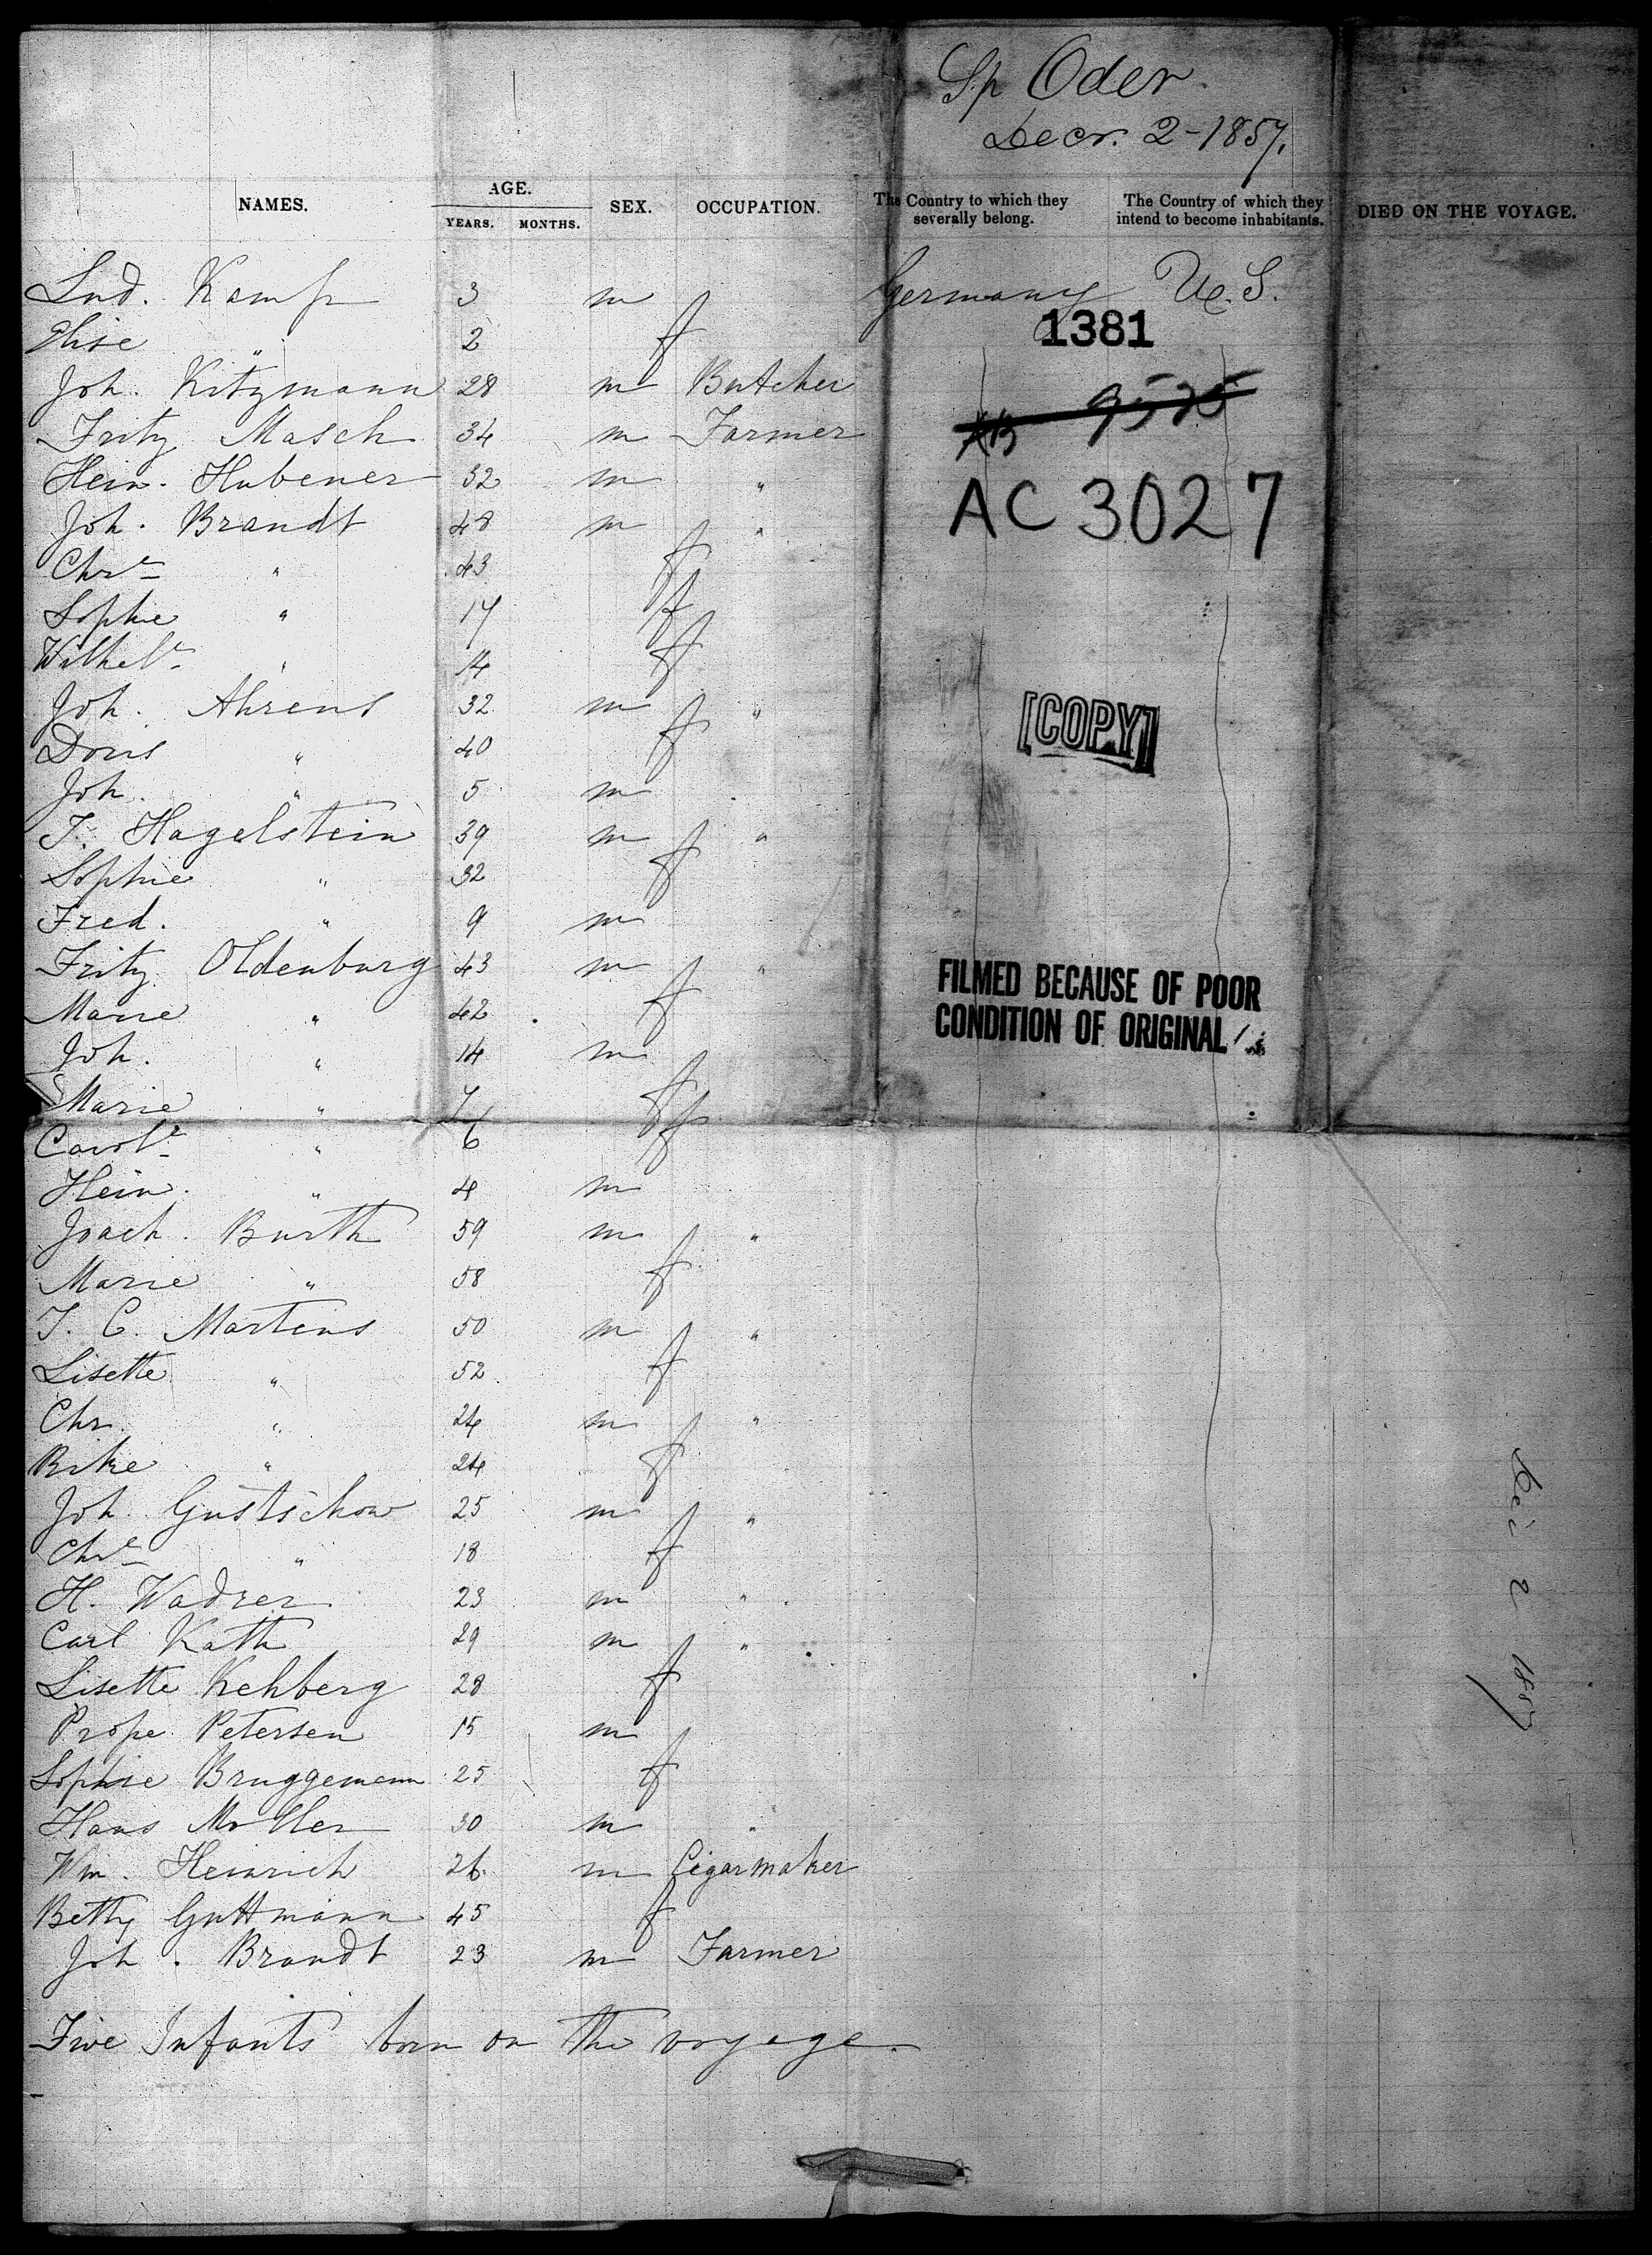 Sp Oder.
Decr. 2-1857.
NAMES. AGE. YEARS. MONTHS. SEX. OCCUPATION. The Country to which they severally belong. The Country of which they intend to become inhabitants. DIED ON THE VOYAGE.
Lud. Kamp 3 m Germany U.S.
Elise " 2 f
1381
Joh. Kitzmann 28 m Butcher
Fritz Masch 34 m Farmer
Hein. Hubener 32 m "
AC 3027
Joh. Brandt 48 m "
Chre " 43 f
Sophie " 17 f
Wilhele " 14 f
Joh. Ahrens 32 m "
[COPY]
Doris " 40 f
Joh. " 5 m
J. Hagelstein 39 m "
Sophie " 32 f
Fred. " 9 m
Fritz Oldenburg 43 m "
FILMED BECAUSE OF POOR
CONDITION OF ORIGINAL
Marie " 42 f
Joh. " 14 m
Marie " 7 f
Carole " 6 f
Hein. " 4 m
Joach. Burth 59 m "
Marie " 58 f
J. C. Martens 50 m "
Lisette " 52 f
Chr. " 24 m "
Rike " 24 f
Joh. Gustschow 25 m "
Chre " 18 f
H. Wadrer 23 m "
Carl Kath 29 m "
Lisette Kehberg 28 f
Prope Petersen 15 m
Sophie Bruggemann 25 f
Hans Moller 30 m "
Wm. Heinrich 26 m Cigarmaker
Betty Guttmann 45 f
Joh. Brandt 23 m Farmer
Five Infants born on the voyage.
Dec 2 1857